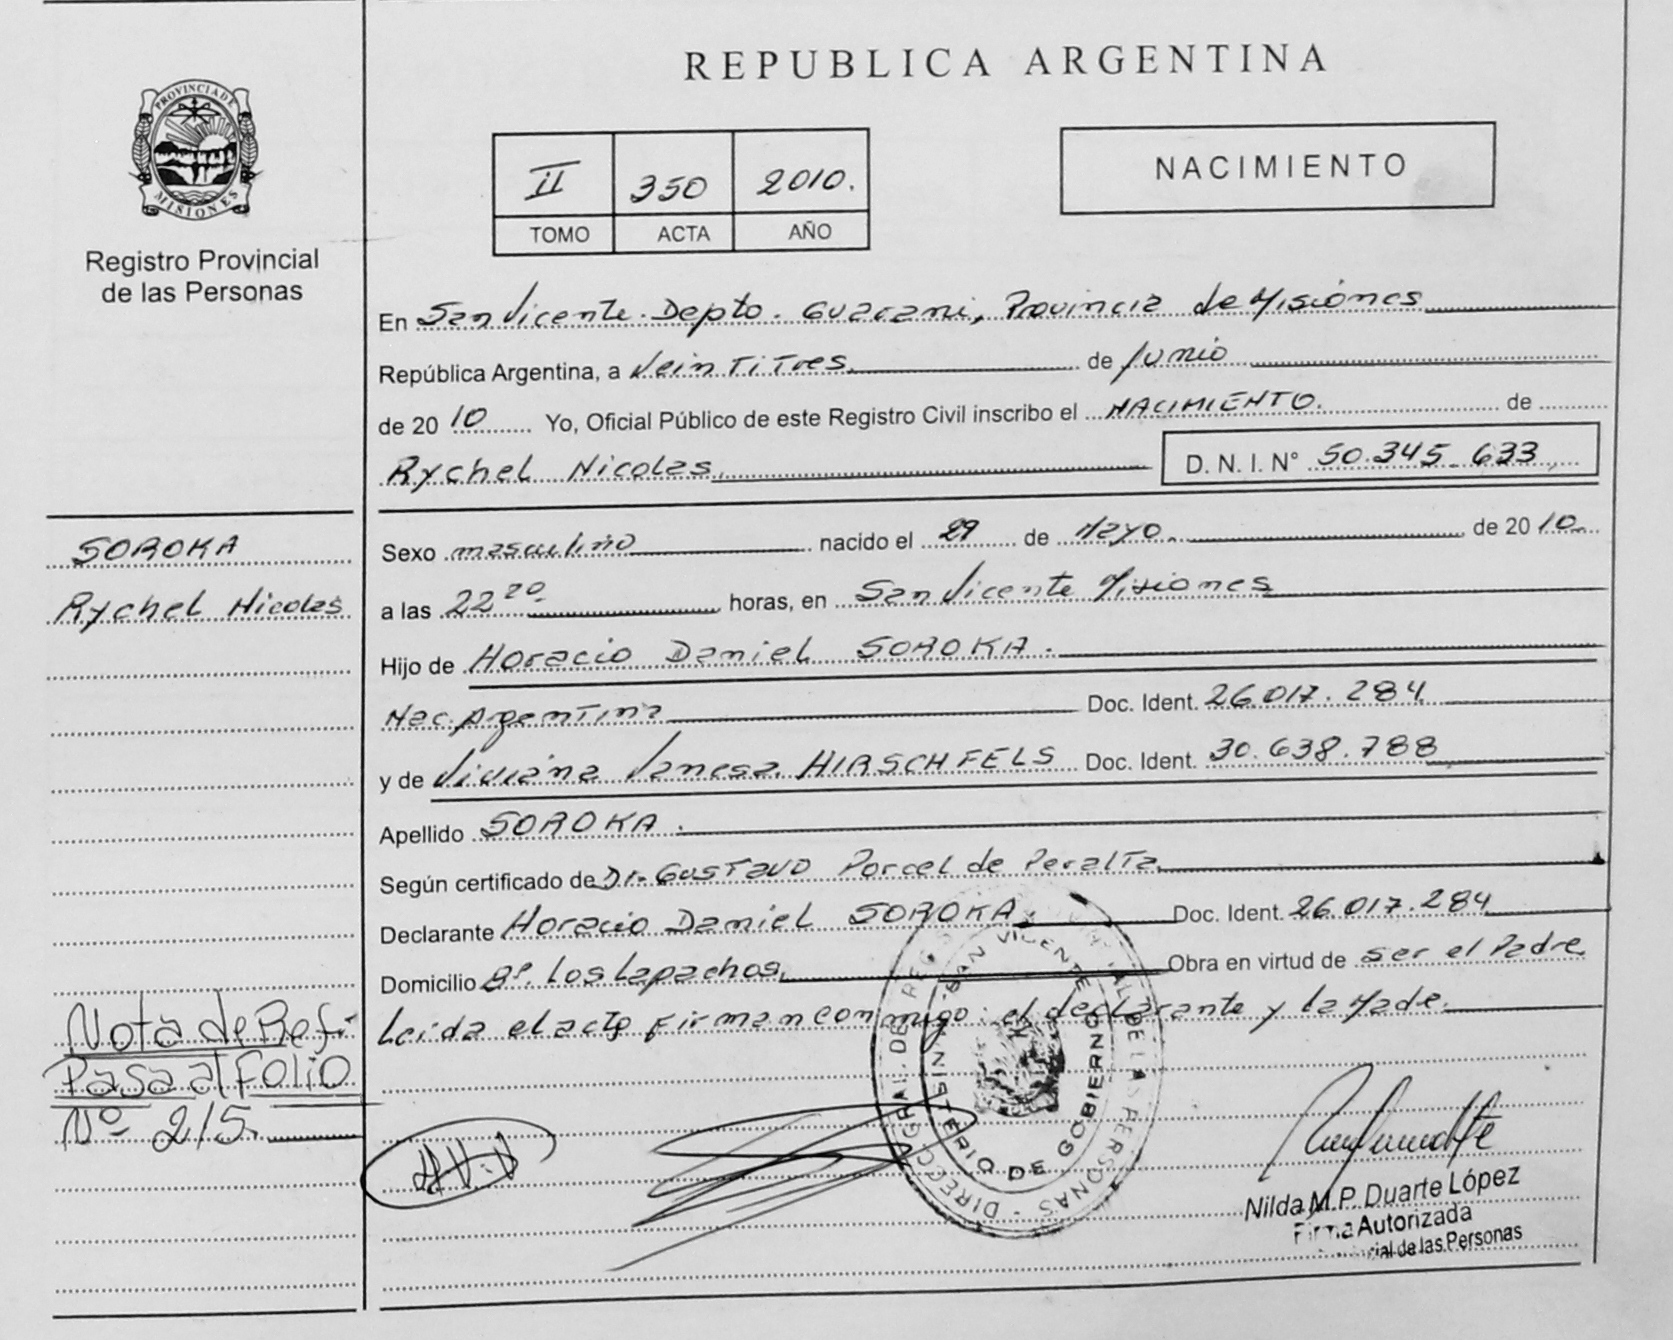 REPUBLICA ARGENTINA
PROVINCIA DE
MISIONES
Registro Provincial
de las Personas
II 350 2010.
TOMO ACTA AÑO
NACIMIENTO
En San Vicente. Depto. Guarani, Provincia de Misiones
República Argentina, a Veintitres de Junio
de 2010 Yo, Oficial Público de este Registro Civil inscribo el NACIMIENTO. de
Rychel Nicolas. D. N. I. N° 50.345.633
SOROKA
Rychel Nicolas
Sexo masculino nacido el 29 de Mayo. de 2010
a las 22 20 horas, en San Vicente Misiones
Hijo de Horacio Daniel SOROKA.
Nac. Argentina Doc. Ident. 26.017.284
y de Viviana Vanesa HIRSCHFELS Doc. Ident. 30.638.788
Apellido SOROKA.
Según certificado de Dr. Gustavo Porcel de Peralta
Declarante Horacio Daniel SOROKA. Doc. Ident. 26.017.284
Domicilio Bº. Los Lapachos. Obra en virtud de ser el Padre
Leida el acta firman conmigo: el declarante y la Made.
Nota de Ref:
Pasa al Folio
Nº 215.
DIRECC. GRAL. DEL REGISTRO PROVINCIAL DE LAS PERSONAS
SAN VICENTE
MINISTERIO DE GOBIERNO
Nilda M.P. Duarte López
Firma Autorizada
de las Personas